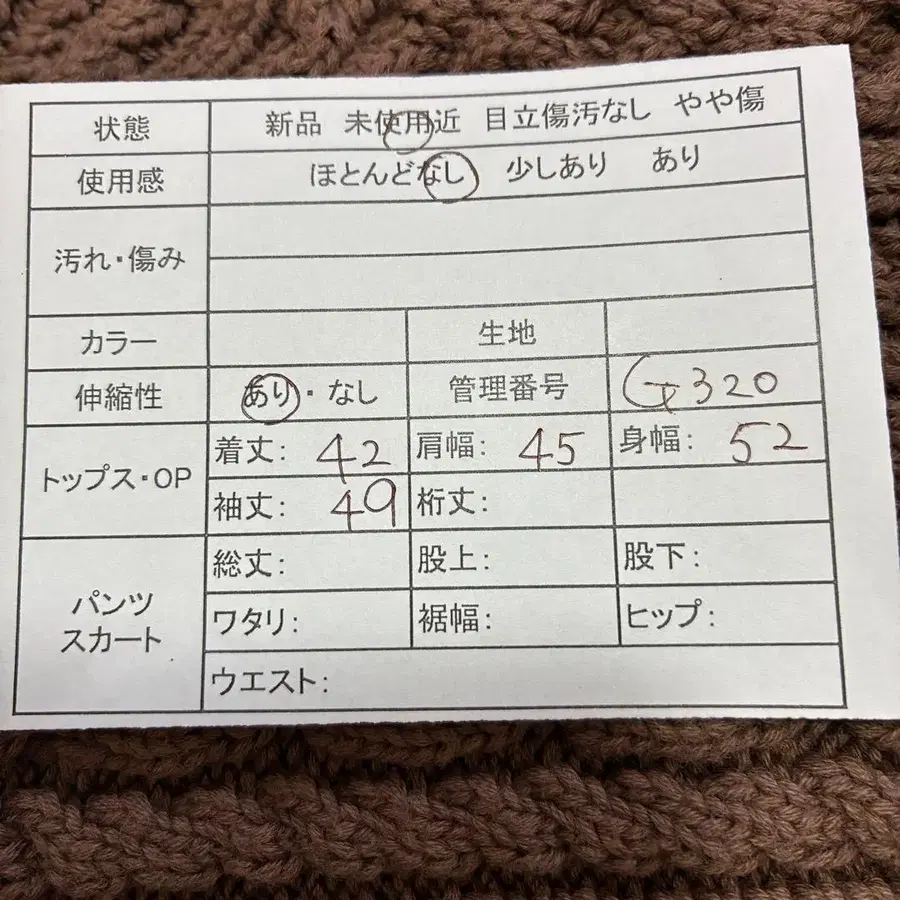 状態 新品 未使用近 目立傷汚なし やや傷
使用感 ほとんどなし 少しあり あり
汚れ・傷み
カラー 生地
伸縮性 あり・なし 管理番号 G320
トップス・OP 着丈: 42 肩幅: 45 身幅: 52
袖丈: 49 裄丈:
パンツ スカート 総丈: 股上: 股下:
ワタリ: 裾幅: ヒップ:
ウエスト: